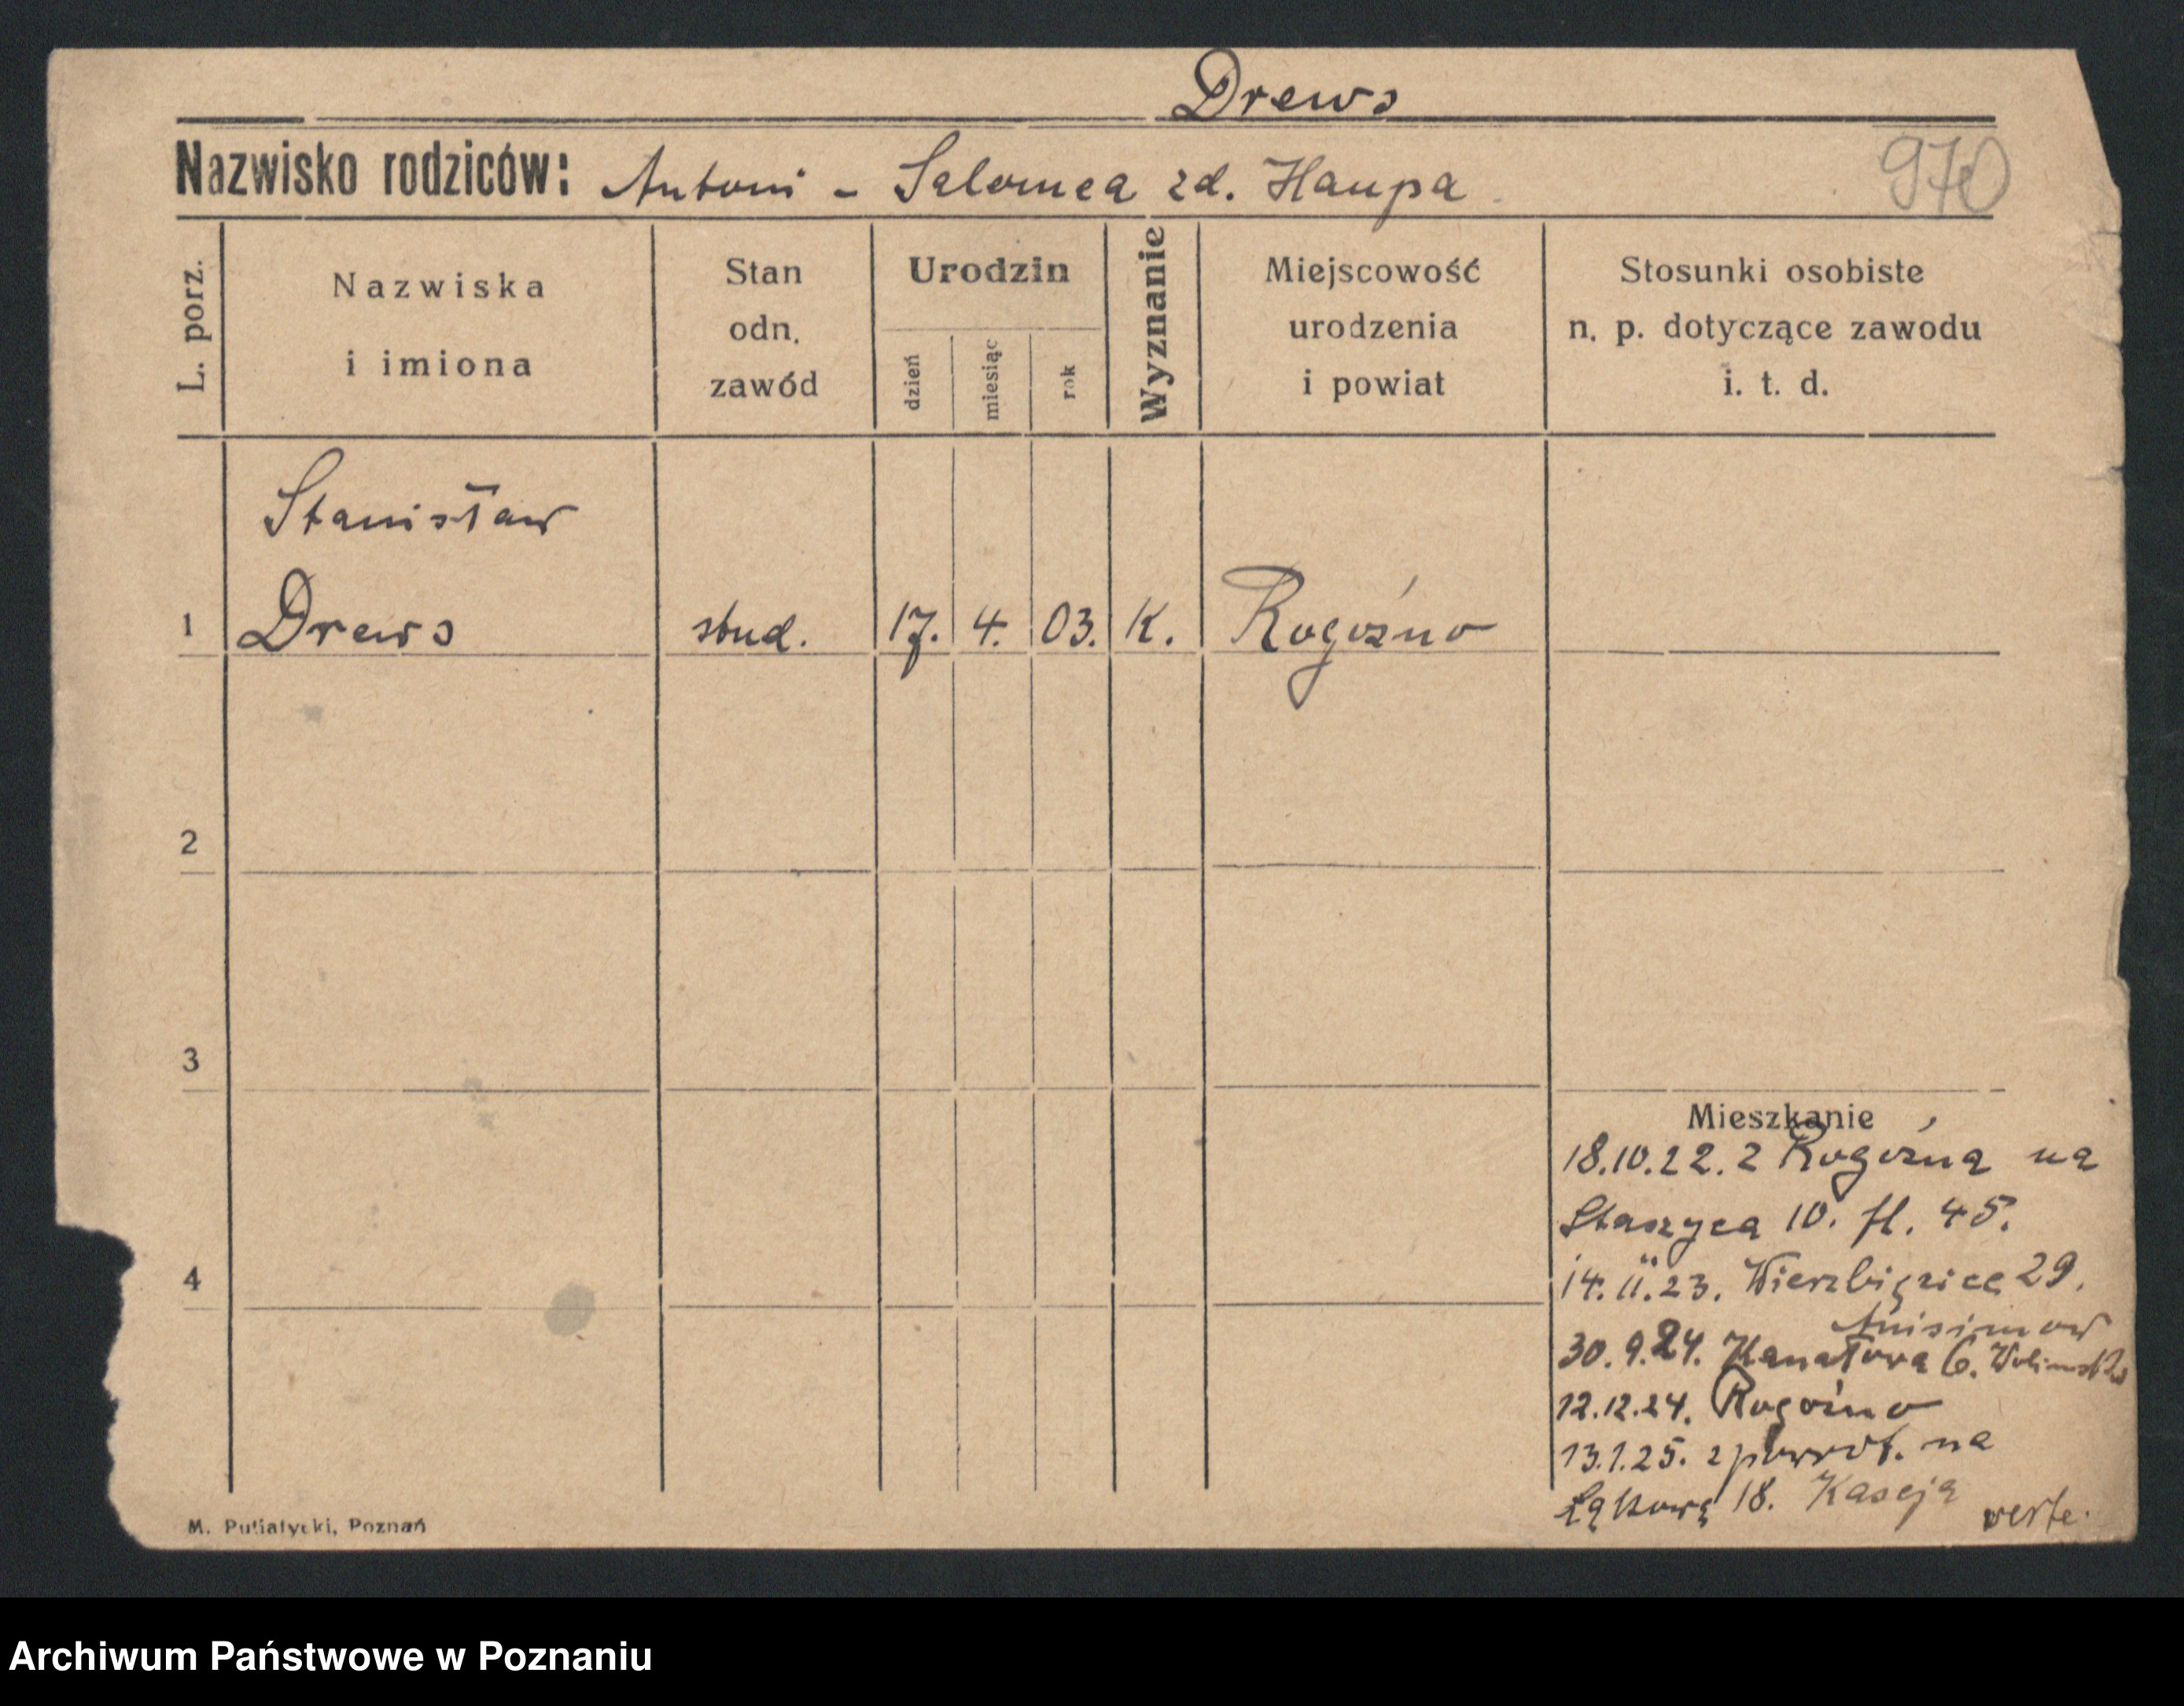 Drews
Nazwisko rodziców: Antoni - Salomea zd. Haupa
970
L. porz.
Nazwiska
i imiona
Stan
odn.
zawód
Urodzin
dzień
miesiąc
rok
Wyznanie
Miejscowość
urodzenia
i powiat
Stosunki osobiste
n. p. dotyczące zawodu
i. t. d.
Stanisław
1 Drews stud. 17. 4. 03. K. Rogoźno
2
3
Mieszkanie
18.10.22. z Rogoźna na
Staszyca 10. fl. 45.
4
14.11.23. Wierzbięcice 29.
Anisimow
30.9.24. Kanałowa 6.
12.12.24. Rogoźno
13.1.25. z powrot. na
Łąkową 18. Kaseja
verte.
M. Putiatycki, Poznań
Archiwum Państwowe w Poznaniu